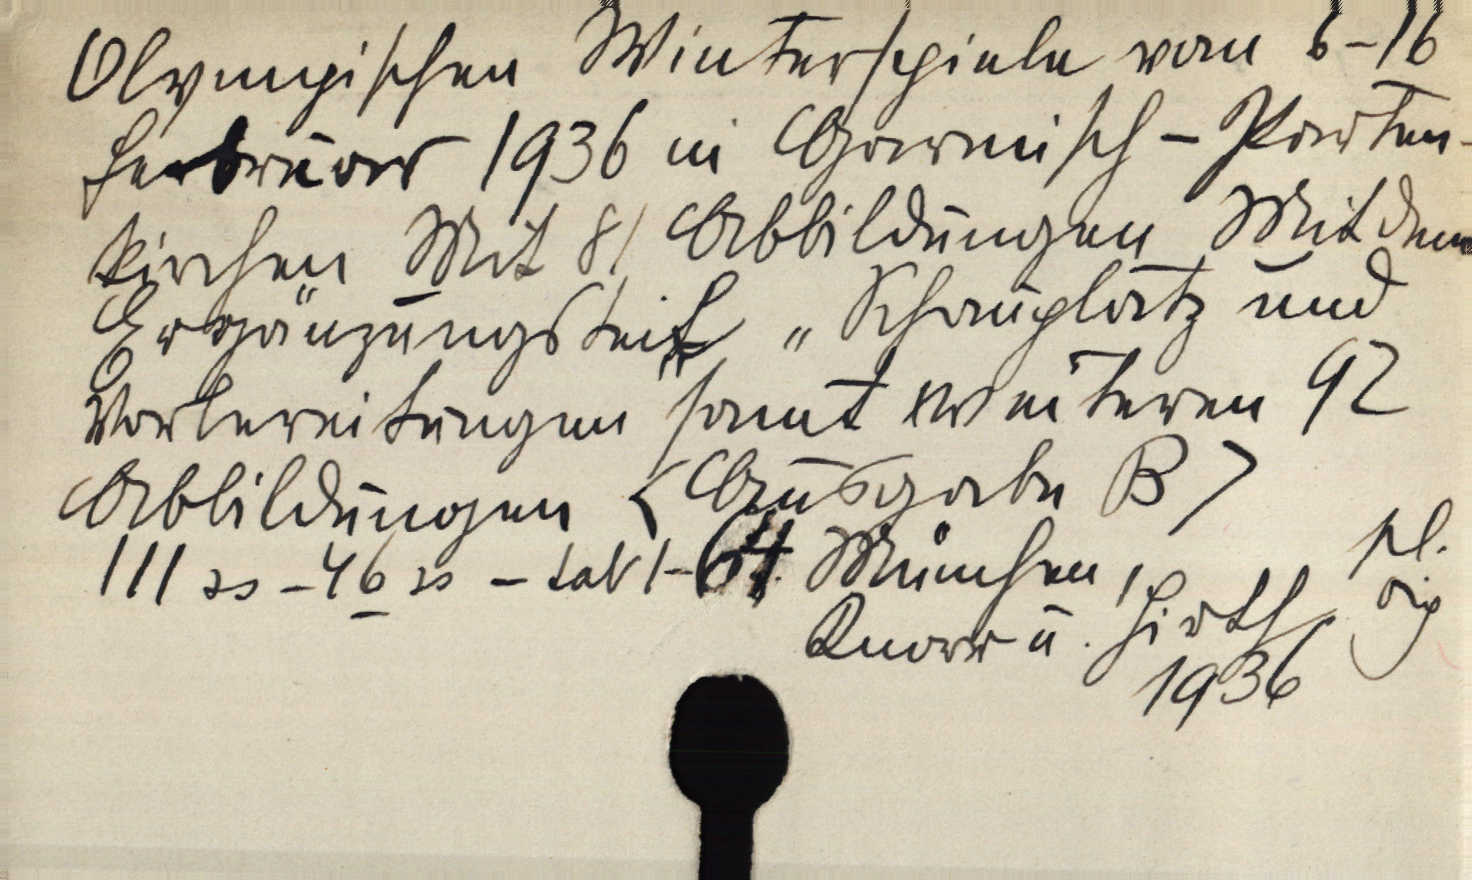 Olympischen Winterspiele vom 6-16
Februar 1936 in Garmisch-Parten-
kirchen Mit 81 Abbildungen Mit dem
Ergänzungsheft „Schauplatz und
Vorbereitungen samt weiteren 92
Abbildungen <Ausgabe B>
111 ss - 46 ss - tab 1-64. München,
Knorr u. Hirth
1936
pl.
orig